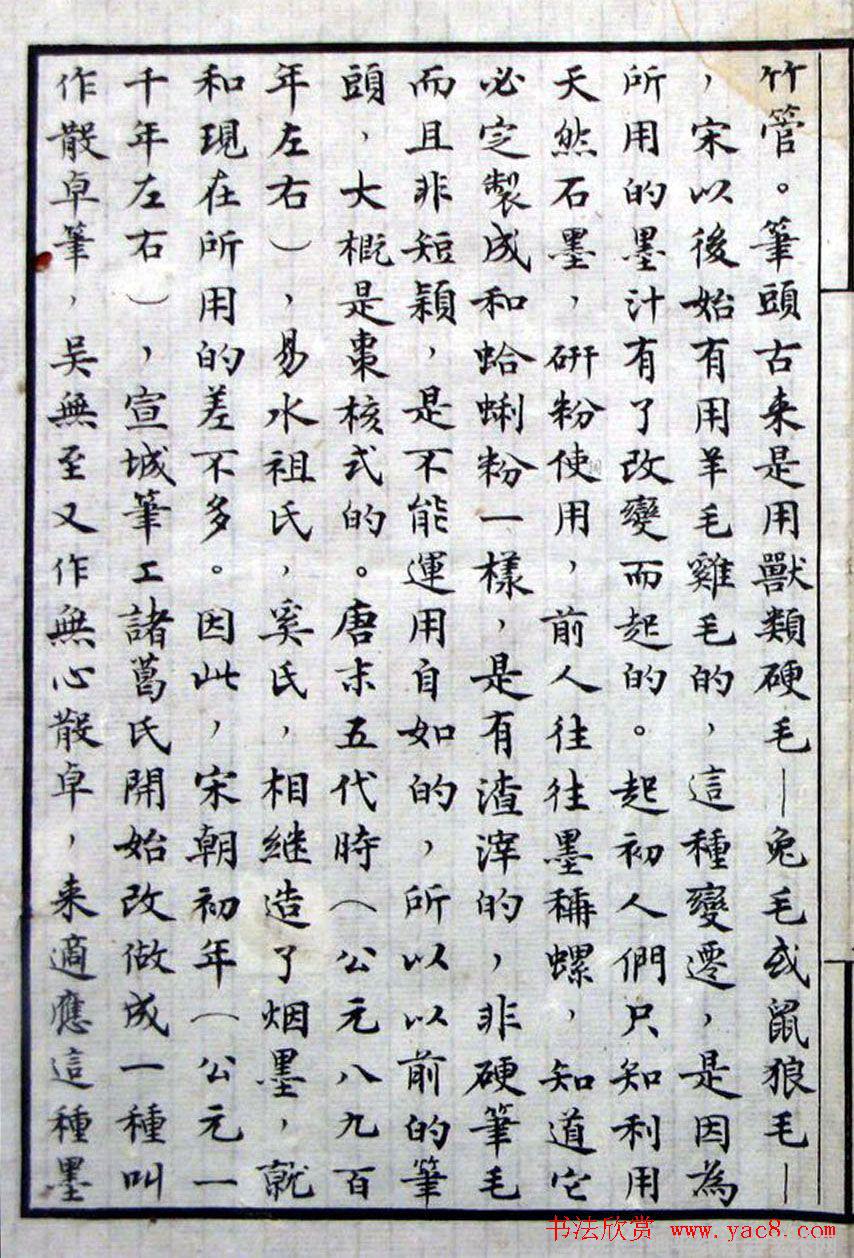 竹管。筆頭古来是用獸類硬毛—兔毛或鼠狼毛—
，宋以後始有用羊毛雞毛的，這種變遷，是因為
所用的墨汁有了改變而起的。起初人們只知利用
天然石墨，研粉使用，前人往往墨稱螺，知道它
必定製成和蛤蜊粉一樣，是有渣滓的，非硬筆毛
而且非短穎，是不能運用自如的，所以以前的筆
頭，大概是棗核式的。唐末五代時（公元八九百
年左右），易水祖氏，奚氏，相継造了烟墨，就
和現在所用的差不多。因此，宋朝初年（公元一
千年左右），宣城筆工諸葛氏開始改做成一種叫
作散卓筆，吴無至又作無心散卓，来適應這種墨
书法欣赏 www.yac8.com